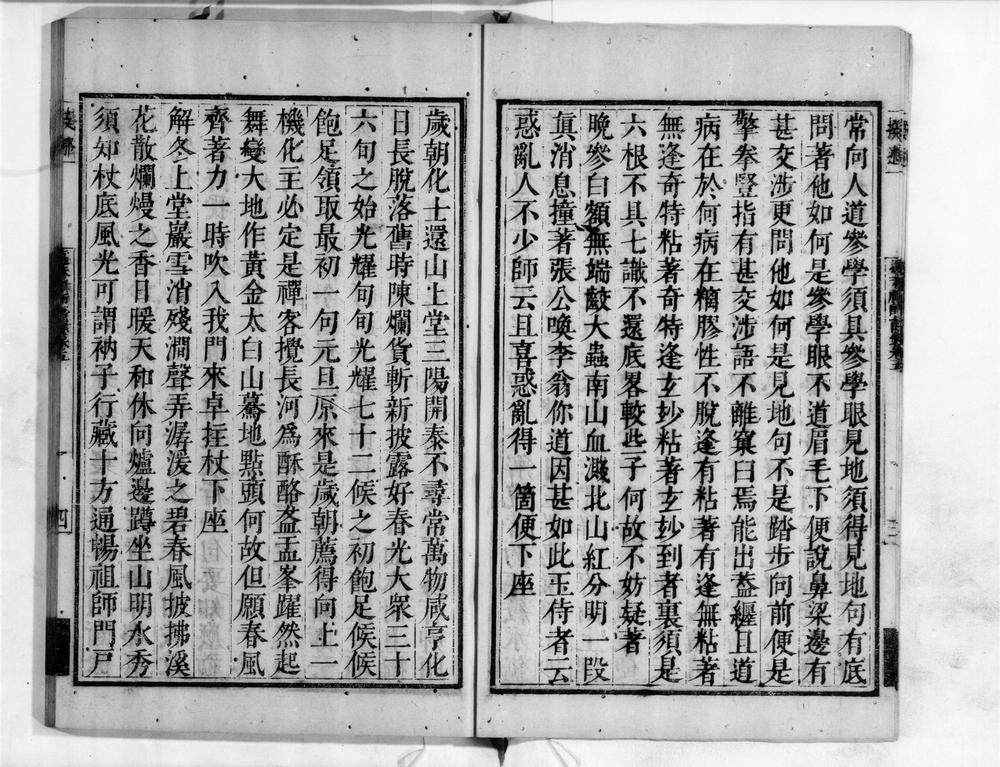 常向人道叅學須具叅學眼見地須得見地句有底
問著他如何是叅學眼不道眉毛下便說鼻梁邊有
甚交涉更問他如何是見地句不是踏步向前便是
擎拳豎指有甚交涉語不離窠臼焉能出葢纏且道
病在於何病在𥻿膠性不脫逢有粘著有逢無粘著
無逢奇特粘著奇特逢玄玅粘著玄玅到者裏須是
六根不具七識不還底畧較些子何故不妨疑著
晚叅白額無端齩大蟲南山血濺北山紅分明一段
眞消息撞著張公喚李翁你道因甚如此玉侍者云
惑亂人不少師云且喜惑亂得一箇便下座
歲朝化士還山上堂三陽開泰不尋常萬物咸亨化
日長脫落舊時陳爛貨斬新披露好春光大衆三十
六旬之始光耀旬旬光耀七十二候之初飽足候候
飽足領取最初一句元旦原來是歲朝薦得向上一
機化王必定是禪客攪長河爲酥酪盋盂峯躍然起
舞變大地作黃金太白山驀地點頭何故但願春風
齊著力一時吹入我門來卓拄杖下座
解冬上堂巖雪消殘澗聲弄潺湲之碧春風披拂溪
花散爛熳之香日暖天和休向爐邊蹲坐山明水秀
須知杖底風光可謂衲子行藏十方通暢祖師門戸
四